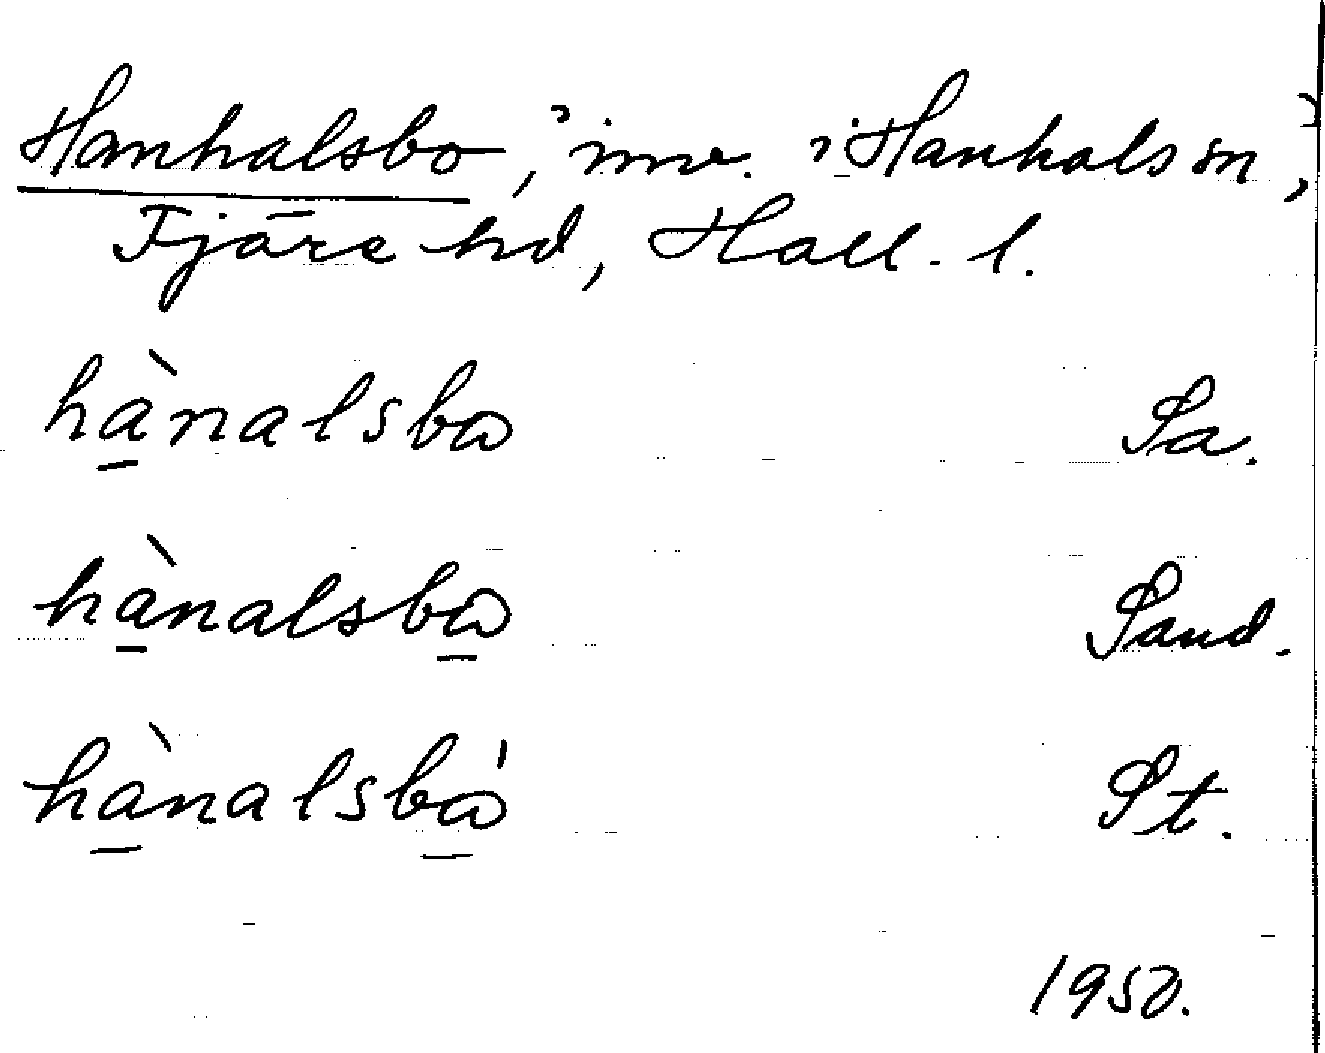 Hanhalsbo, "inv. i Hanhals sn,"
Fjäre hd, Hall. l.
hànalsbω Sa.
hànalsbω Sand.
hànalsbώ St.
1950.